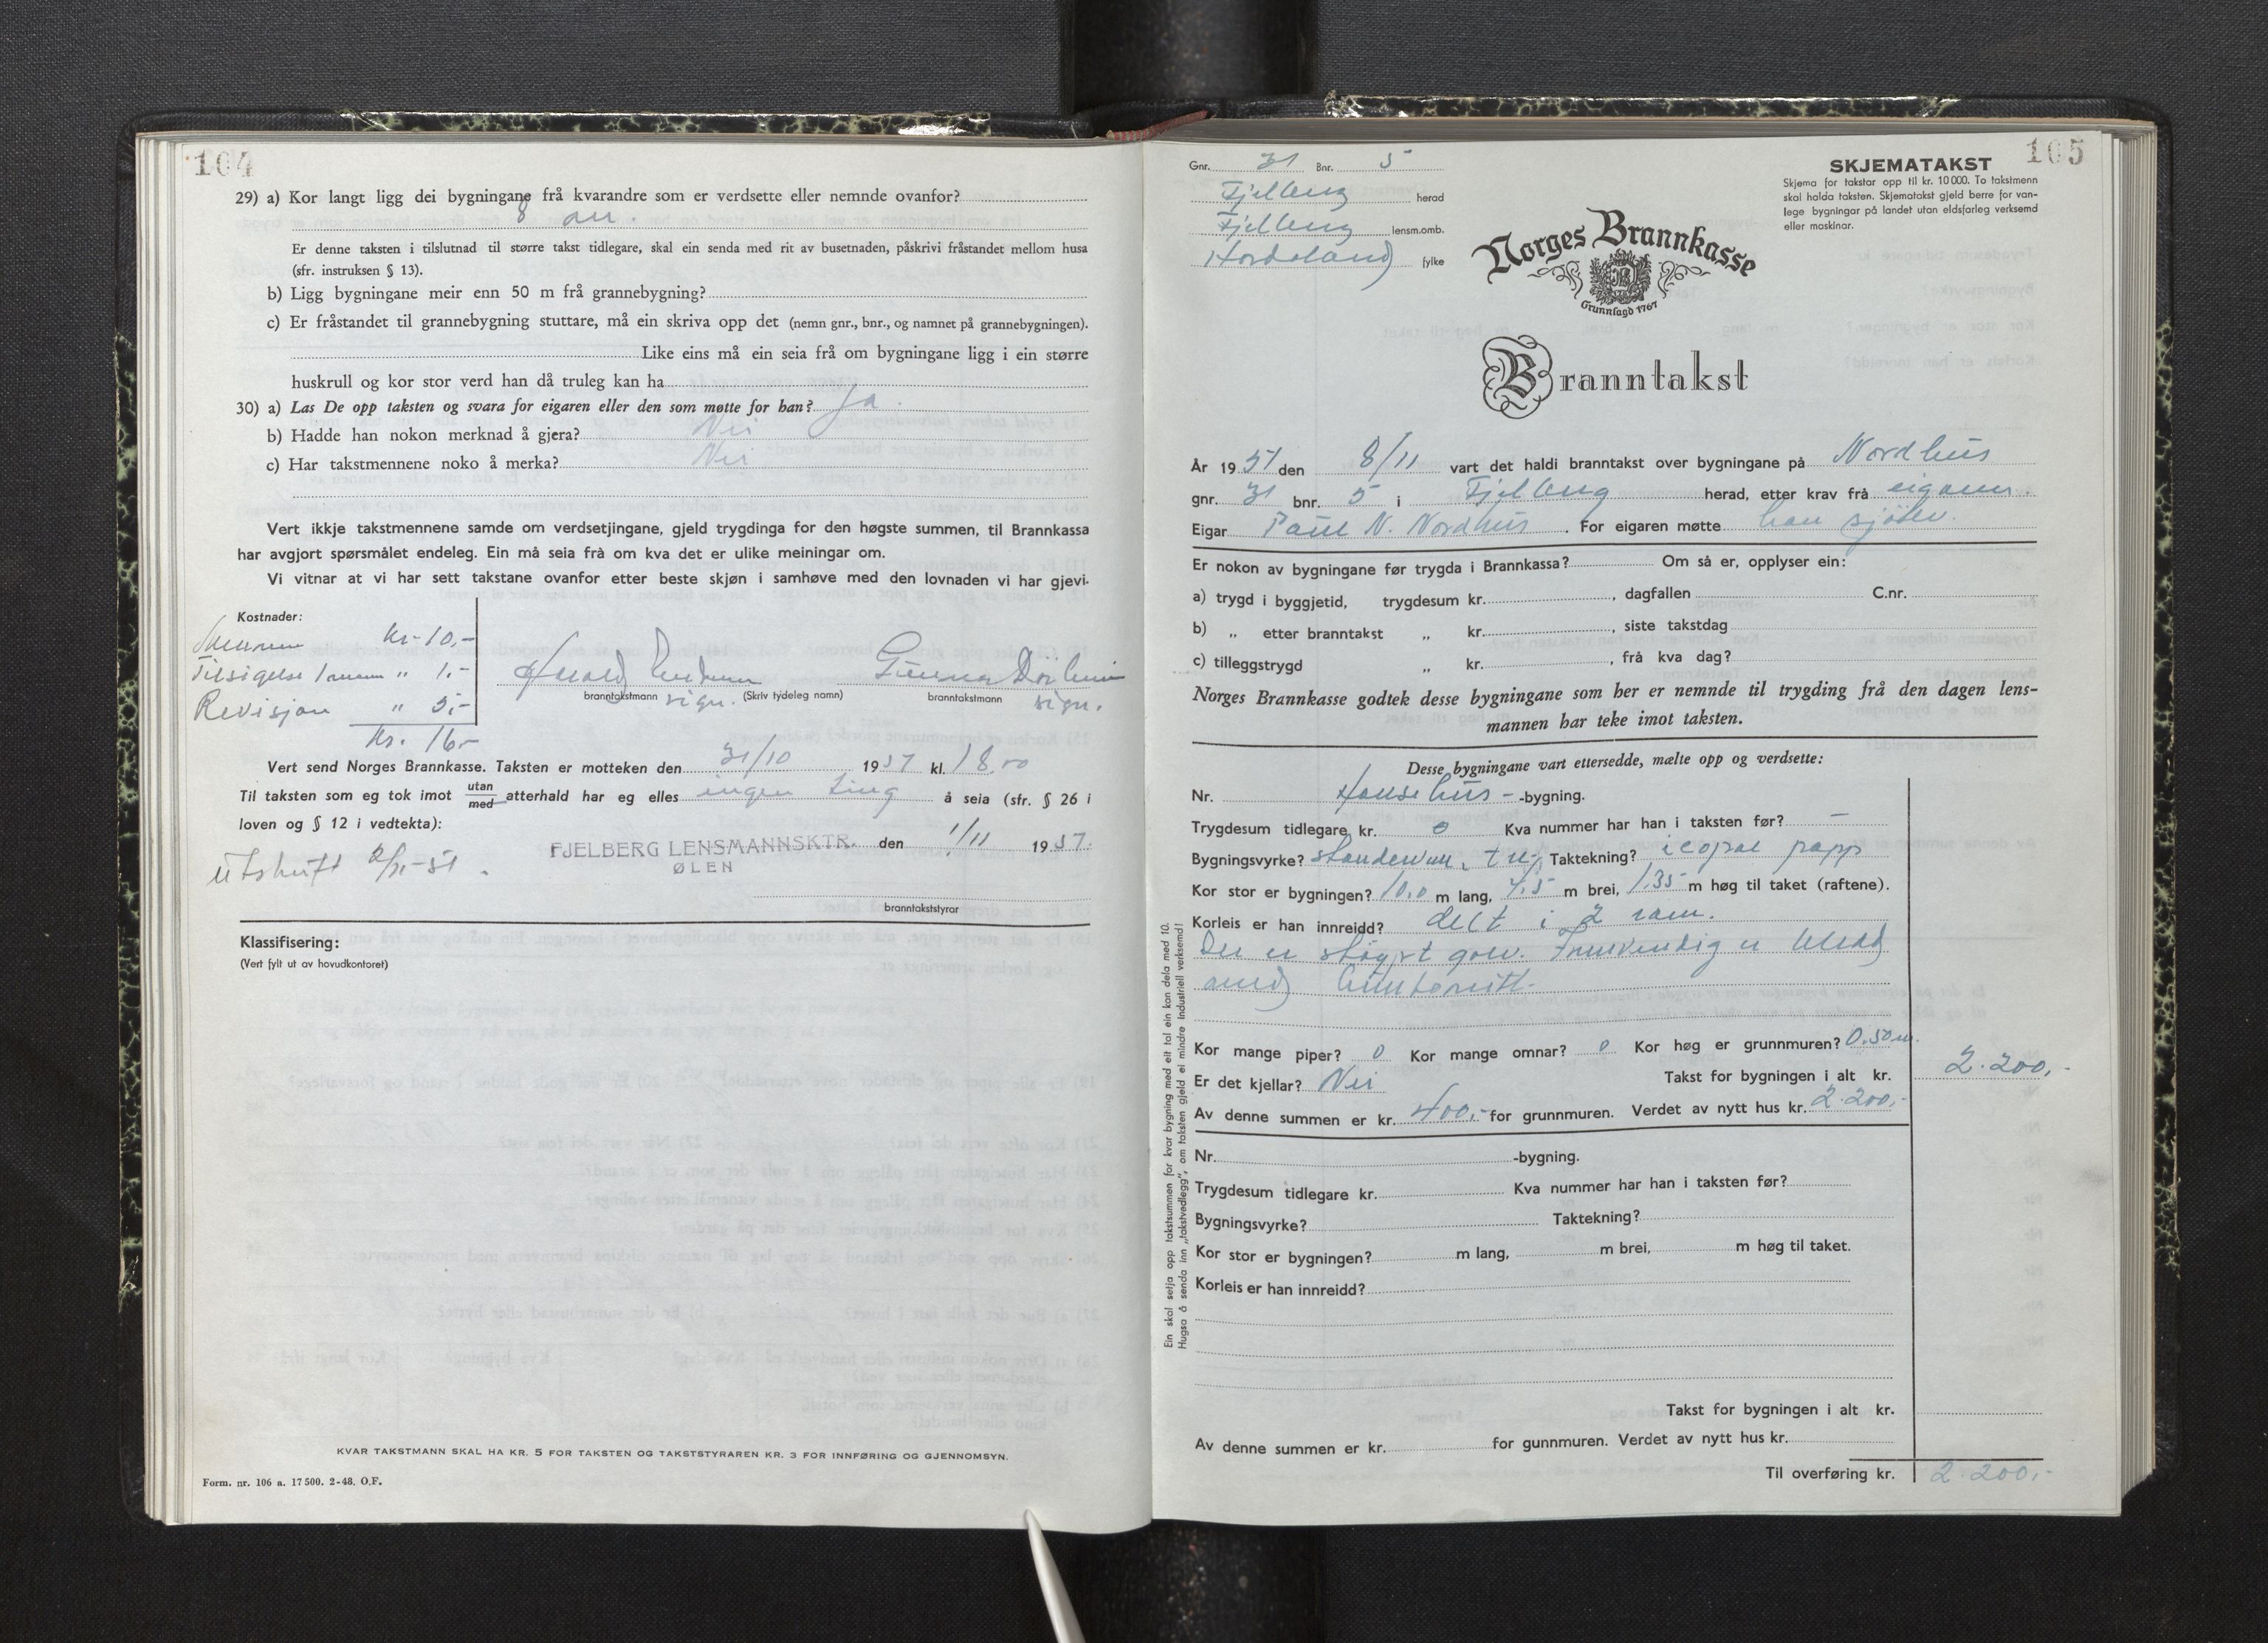 104
29) a) Kor langt ligg dei bygningane frå kvarandre som er verdsette eller nemnde ovanfor?
8 m.
Er denne taksten i tilslutnad til større takst tidlegare, skal ein senda med rit av busetnaden, påskrivi fråstandet mellom husa
(sfr. instruksen § 13).
b) Ligg bygningane meir enn 50 m frå grannebygning?
c) Er fråstandet til grannebygning stuttare, må ein skriva opp det (nemn gnr., bnr., og namnet på grannebygningen).
Like eins må ein seia frå om bygningane ligg i ein større
huskrull og kor stor verd han då truleg kan ha
30) a) Las De opp taksten og svara for eigaren eller den som møtte for han? Ja.
b) Hadde han nokon merknad å gjera? Nei
c) Har takstmennene noko å merka? Nei
Vert ikkje takstmennene samde om verdsetjingane, gjeld trygdinga for den høgste summen, til Brannkassa
har avgjort spørsmålet endeleg. Ein må seia frå om kva det er ulike meiningar om.
Vi vitnar at vi har sett takstane ovanfor etter beste skjøn i samhøve med den lovnaden vi har gjevi.
Kostnader:
kr. 10,-
Tilsigelse 1 mann " 1.-
Revisjon " 5,-
kr. 16-
Harald
branntakstmann sign. (Skriv tydeleg namn)
Gunnar
branntakstmann sign.
Vert send Norges Brannkasse. Taksten er motteken den 31/10 1951 kl. 18.00
Til taksten som eg tok imot utan/med atterhald har eg elles ingen ting å seia (sfr. § 26 i
loven og § 12 i vedtekta):
FJELBERG LENSMANNSKTR. den 1/11 1951.
ØLEN
Utskrift 2/11-51.
branntakststyrar
Klassifisering:
(Vert fylt ut av hovudkontoret)
KVAR TAKSTMANN SKAL HA KR. 5 FOR TAKSTEN OG TAKSTSTYRAREN KR. 3 FOR INNFØRING OG GJENNOMSYN.
Form. nr. 106 a. 17 500. 2-48. O.F.
105
Gnr. 31 Bnr. 5
Fjelberg herad
Fjelberg lensm.omb.
Hordaland fylke
SKJEMATAKST
Skjema for takstar opp til kr. 10 000. To takstmenn
skal halda taksten. Skjematakst gjeld berre for van-
lege bygningar på landet utan eldsfarleg verksemd
eller maskinar.
Norges Brannkasse
Grunnlagd 1767
Branntakst
År 1951 den 8/11 vart det haldi branntakst over bygningane på Nordhus
gnr. 31 bnr. 5 i Fjelberg herad, etter krav frå eigaren.
Eigar Paul N. Nordhus. For eigaren møtte han sjølv.
Er nokon av bygningane før trygda i Brannkassa? Om så er, opplyser ein:
a) trygd i byggjetid, trygdesum kr. , dagfallen C.nr.
b) „ etter branntakst „ kr. , siste takstdag
c) tilleggstrygd „ kr. , frå kva dag?
Norges Brannkasse godtek desse bygningane som her er nemnde til trygding frå den dagen lens-
mannen har teke imot taksten.
Desse bygningane vart ettersedde, mælte opp og verdsette:
Nr. Hønsehus- -bygning.
Trygdesum tidlegare kr. 0 Kva nummer har han i taksten før? —
Bygningsvyrke? Taktekning? icopal papp
Kor stor er bygningen? 10,0 m lang, 4,5 m brei, 1,35 m høg til taket (raftene).
Korleis er han innreidd? delt i 2 rom.
Der er støypt golv. Innvendig er kledd
med
Kor mange piper? 0 Kor mange omnar? 0 Kor høg er grunnmuren? 0.50 m.
Er det kjellar? Nei Takst for bygningen i alt kr. 2.200,-
Av denne summen er kr. 400,- for grunnmuren. Verdet av nytt hus kr. 2.200,-
Nr. -bygning.
Trygdesum tidlegare kr. Kva nummer har han i taksten før?
Bygningsvyrke? Taktekning?
Kor stor er bygningen? m lang, m brei, m høg til taket.
Korleis er han innreidd?
Takst for bygningen i alt kr.
Av denne summen er kr. for gunnmuren. Verdet av nytt hus kr.
Til overføring kr. 2.200,-
Ein skal setja opp takstsummen for kvar bygning med eit tal ein kan dela med 10.
Hugsa å senda inn „takstvedlegg", om taksten gjeld ei mindre industriell verksemd!